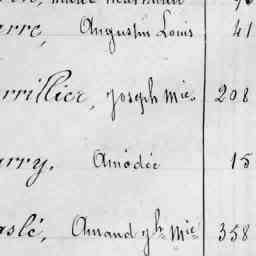 arre, Augustin Louis 41
arrillier, Joseph Mie. 208
arry, Amédée 15
aslé, Amand Jh Mie 358